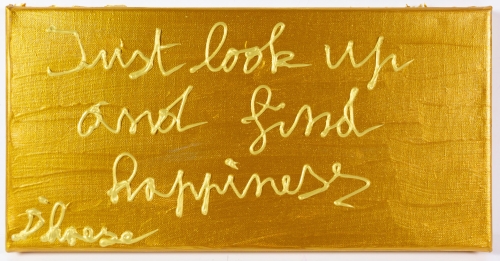 Just look up
and find
happiness
D'hoese